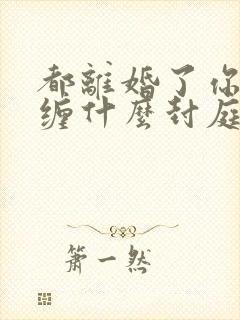 都離婚了你
缠什麼封庭
箫一然